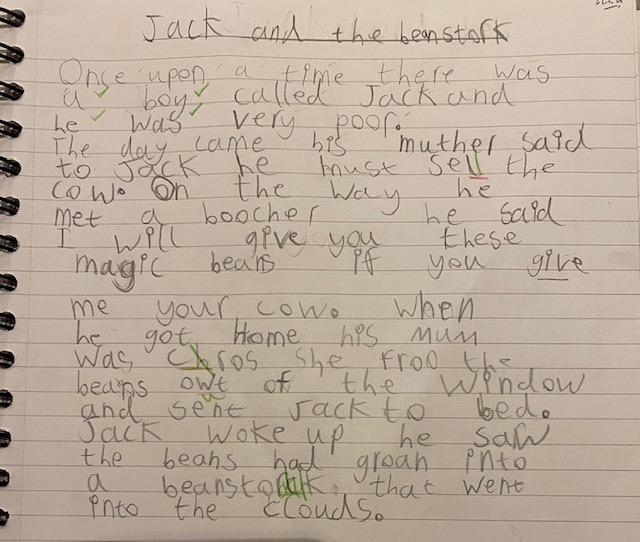 Jack and the beanstork
Once upon a time there was
a boy called Jack and
he was very poor.
The day came his muther said
to Jack he must sell the
cow. On the way he
met a boocher he said
I will give you these
magic beans if you give
me your cow. When
he got Home his mum
was chros she froo the
beans owt of the window
and sent Jack to bed.
Jack woke up he saw
the beans had groan into
a beanstalk that went
into the clouds.